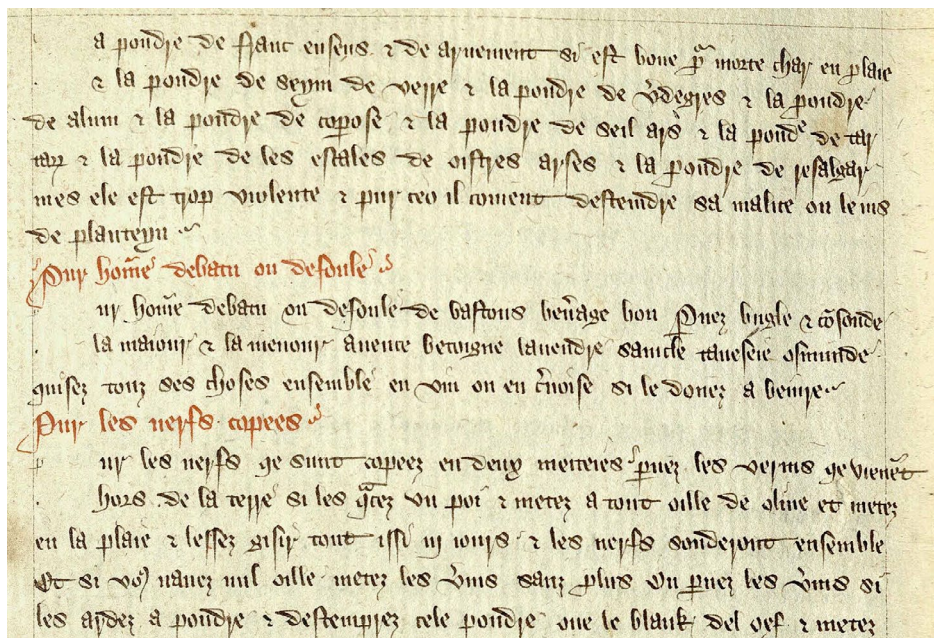 a poudre de franc ensens ⁊ de arnement si est bone pᵃ morte char en plaie
⁊ la poudre de seym de verre ⁊ la poudre de v̾degres ⁊ la poudre
de alum ⁊ la poudre de copose ⁊ la poudre de seil ars ⁊ la poudᵉ de tar
tarz ⁊ la poudre de les escales de oistres arses ⁊ la poudre de resalgar
mes ele est trop violente ⁊ pur ceo il covient destendre sa malice ou le ius
de planteyn
Pur hōme debatu ou desoule
ur hōme debatu ou desoule de bastons bev̾age bon P̱nez bugle ⁊ cōsoude
la maiour ⁊ la menour avence betoigne lavendre sanicle taneseie osmunde
quisez touz ses choses ensemble en vin ou en c̾voise si le donez a beivre
Pur les nerfs copees
ur les nerfs qe sunt copeez en deux meiteies p̱nez les verms qe vienēt
hors de la terre si les qᵃcez un poi ⁊ metez a tout oille de olive et metez
en la plaie ⁊ lessez gisir tout issi iij iours ⁊ les nerfs souderont ensemble
Et si voꝰ navez nul oille metez les v̾ms sanz plus Ou p̱nez les v̾ms si
les ardez a poudre ⁊ destemprez cele poudre ove le blank del oef ⁊ metez